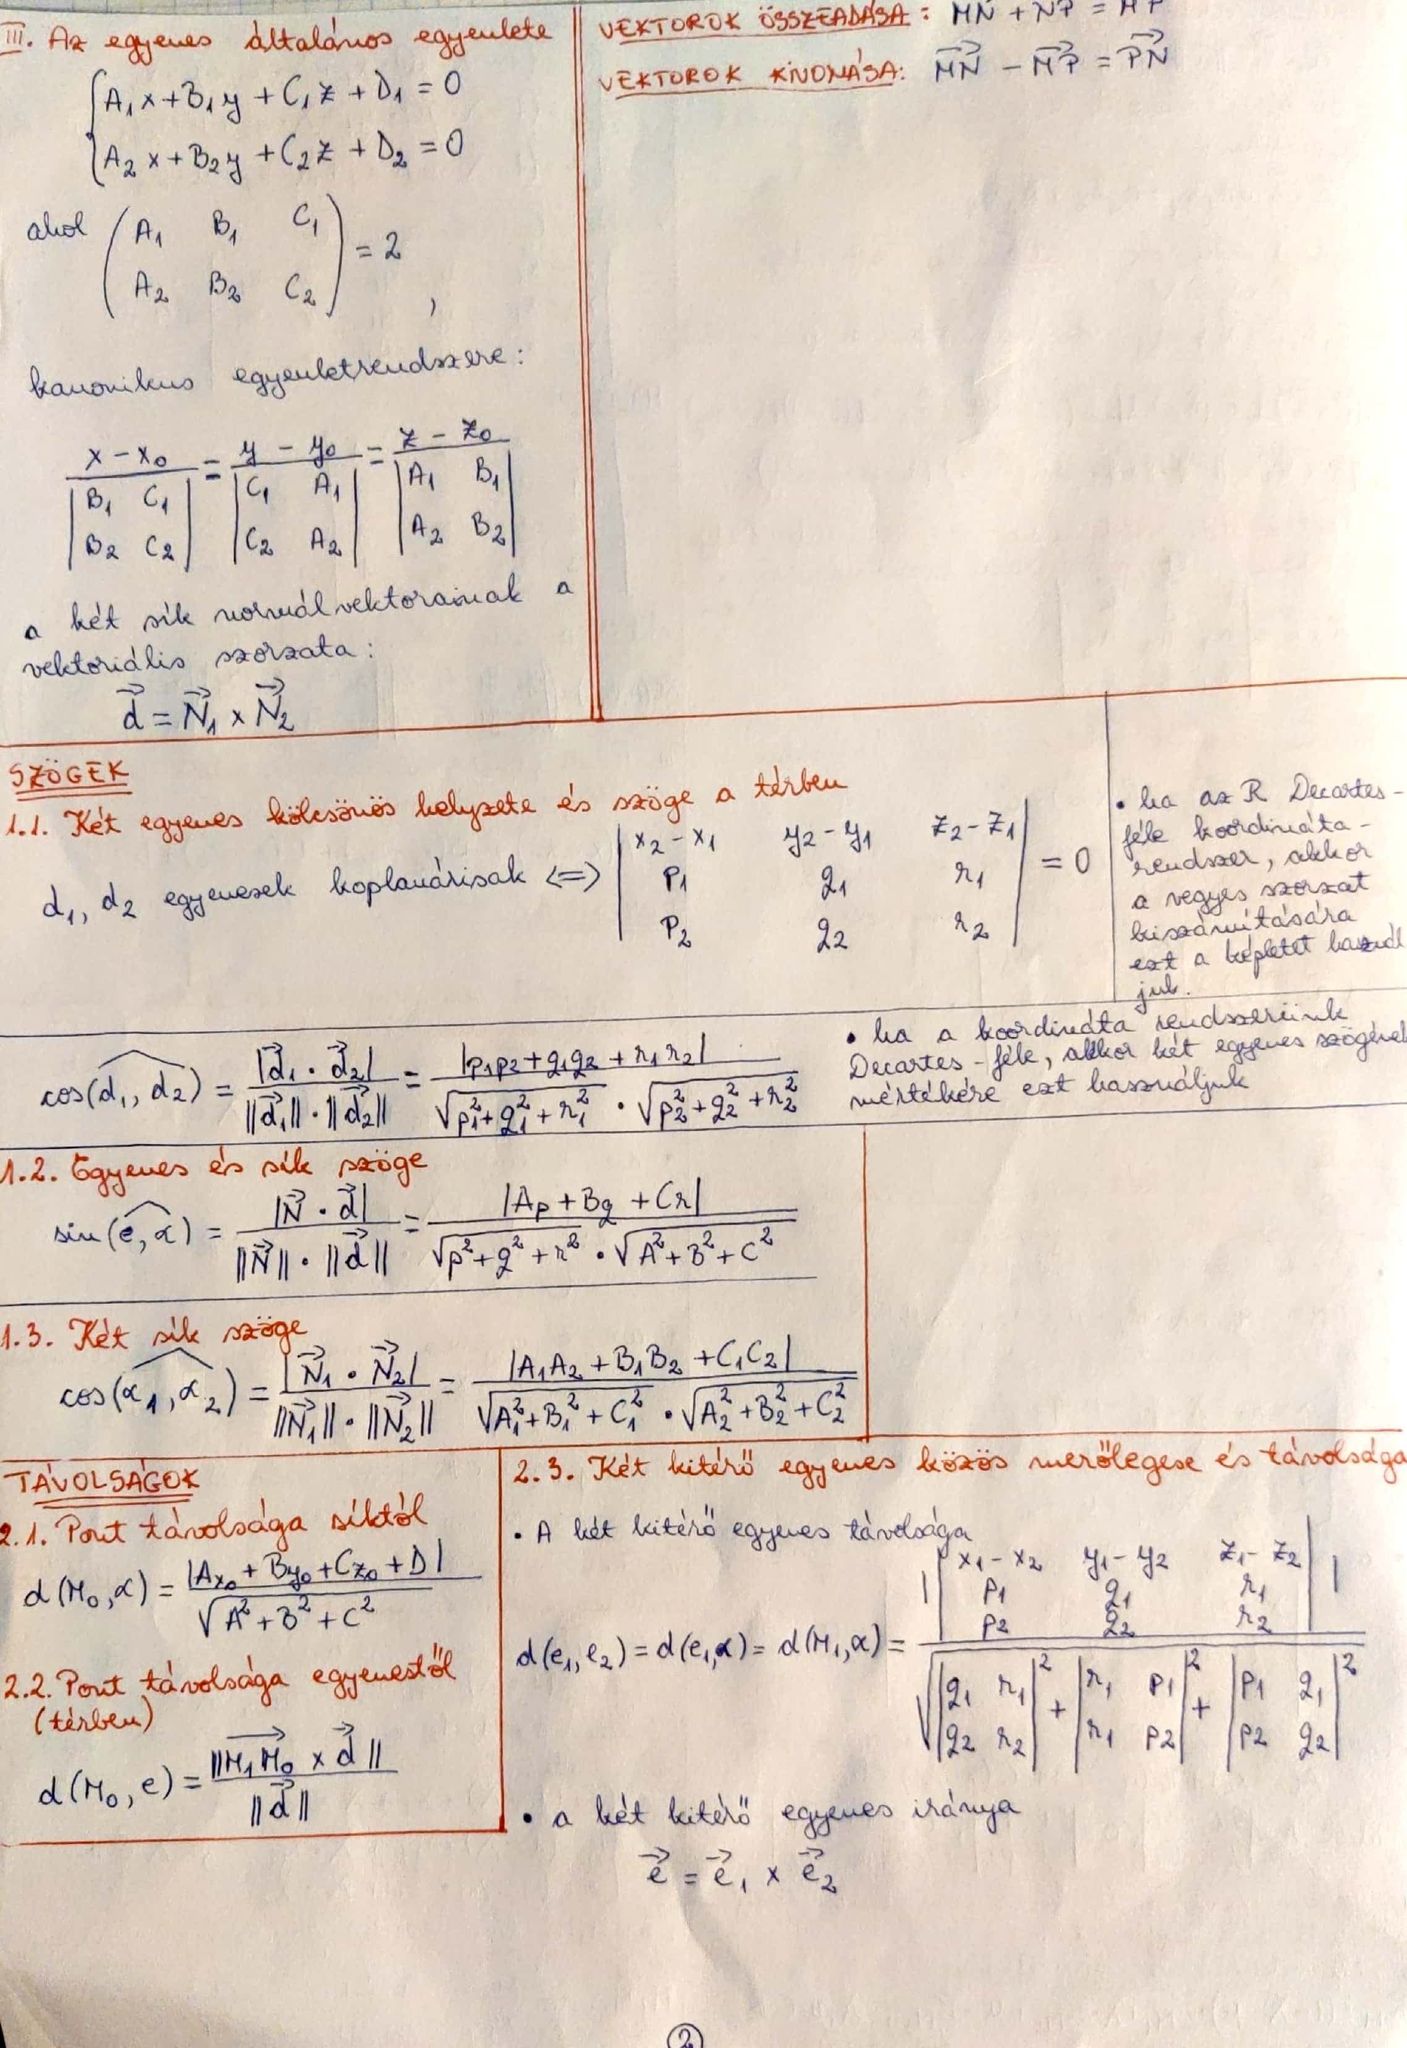 III. Az egyenes általános egyenlete
A₁x + B₁y + C₁z + D₁ = 0
A₂x + B₂y + C₂z + D₂ = 0
ahol
A₁ B₁ C₁
A₂ B₂ C₂
= 2 ,
kanonikus egyenletrendszere:
x - x₀ = y - y₀ = z - z₀
|B₁ C₁| |C₁ A₁| |A₁ B₁|
|B₂ C₂| |C₂ A₂| |A₂ B₂|
a két sík normálvektorainak a
vektoriális szorzata:
d⃗ = N⃗₁ × N⃗₂
VEKTOROK ÖSSZEADÁSA: MN + NP = MP
VEKTOROK KIVONÁSA: MN⃗ - MP⃗ = PN⃗
SZÖGEK
1.1. Két egyenes kölcsönös helyzete és szöge a térben
d₁, d₂ egyenesek koplanárisak <=>
|x₂ - x₁ y₂ - y₁ z₂ - z₁|
|p₁ q₁ r₁| = 0
|p₂ q₂ r₂|
• ha az R Decartes-
féle koordináta-
rendszer, akkor
a vegyes szorzat
kiszámítására
ezt a képletet használ
juk.
cos(d₁, d₂) = |d⃗₁ · d⃗₂| / ||d⃗₁|| · ||d⃗₂|| = |p₁p₂ + q₁q₂ + r₁r₂| / √p₁² + q₁² + r₁² · √p₂² + q₂² + r₂²
• ha a koordináta rendszerünk
Decartes-féle, akkor két egyenes szögének
mértékére ezt használjuk
1.2. Egyenes és sík szöge
sin(e, α) = |N⃗ · d⃗| / ||N⃗|| · ||d⃗|| = |Ap + Bq + Cr| / √p² + q² + r² · √A² + B² + C²
1.3. Két sík szöge
cos(α₁, α₂) = |N⃗₁ · N⃗₂| / ||N⃗₁|| · ||N⃗₂|| = |A₁A₂ + B₁B₂ + C₁C₂| / √A₁² + B₁² + C₁² · √A₂² + B₂² + C₂²
TÁVOLSÁGOK
2.1. Pont távolsága síktól
d(M₀, α) = |Ax₀ + By₀ + Cz₀ + D| / √A² + B² + C²
2.2. Pont távolsága egyenestől
(térben)
d(M₀, e) = ||M₁M₀⃗ × d⃗|| / ||d⃗||
2.3. Két kitérő egyenes közös merőlegese és távolsága
• A két kitérő egyenes távolsága
|x₁ - x₂ y₁ - y₂ z₁ - z₂|
|p₁ q₁ r₁|
|p₂ q₂ r₂|
d(e₁, e₂) = d(e₁, α) = d(M₁, α) =
√ |q₁ r₁|² + |r₁ p₁|² + |p₁ q₁|²
|q₂ r₂| |r₁ p₂| |p₂ q₂|
• a két kitérő egyenes iránya
e⃗ = e⃗₁ × e⃗₂
2